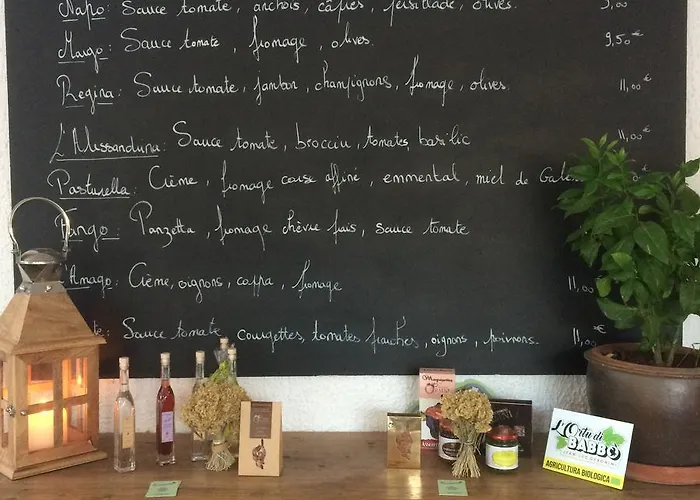 Napo: Sauce tomate, anchois, câpres, persillade, olives.
Margo: Sauce tomate, fromage, olives. 9,50€
Regina: Sauce tomate, jambon, champignons, fromage, olives. 11,00€
L'Alessandrina: Sauce tomate, brocciu, tomates, basilic 11,00€
Pasturella: Crème, fromage corse affiné, emmental, miel de
Fango: Panzetta, fromage chèvre frais, sauce tomate
Crème, oignons, coppa, fromage 11,00
Sauce tomate, courgettes, tomates fraîches, oignons, poivrons. 11,00€
L'Ortu di
BABBO
AGRICULTURA BIOLOGICA